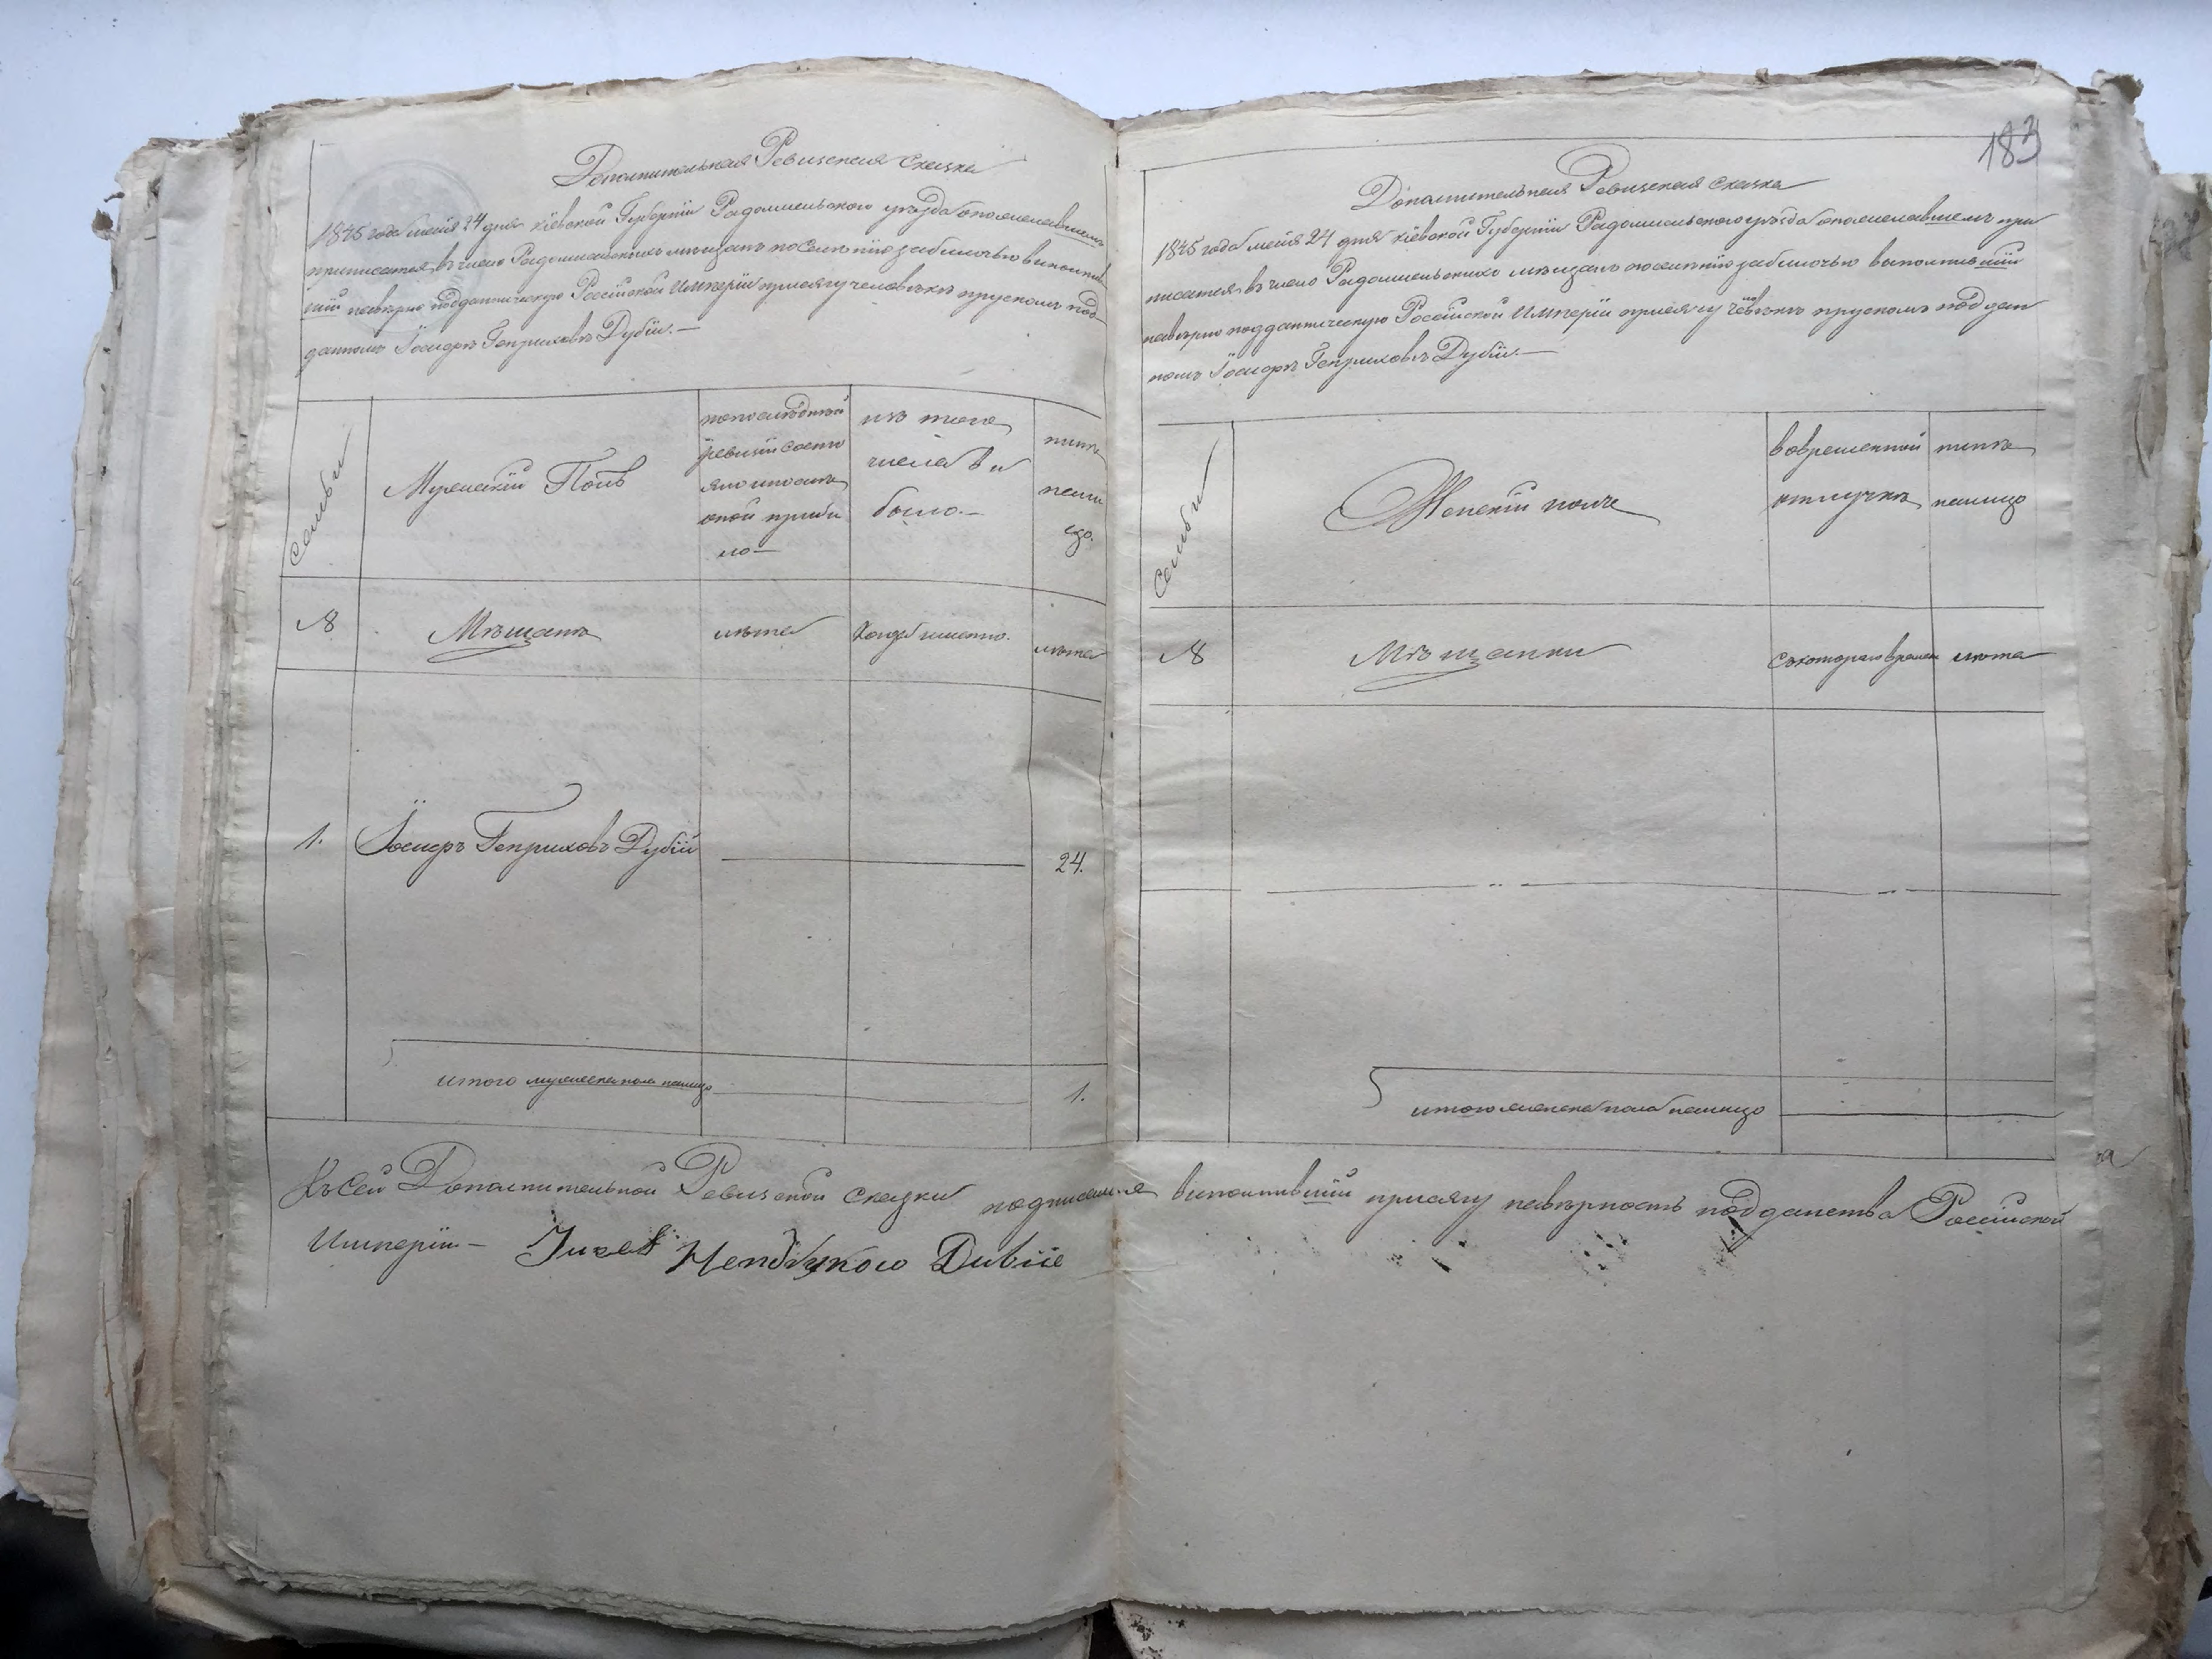 Дополнительная Ревизская сказка
1845 года маія 24 дня Кіевской Губерніи Радомысльского уѣзда о пожелавшемъ
приписатся въ число Радомысльскихъ мѣщанъ по Селенію заблочью выполнив
шій навѣрно подданическую Россійской Имперіи присягу человѣкъ прускомъ под
данномъ Іосифъ Генриховъ Дубіи.—
семьи
Мужескій Полъ
по последней
ревизіи состо
яло и после
оной прибы
ло —
изъ того
числа вы
было. —
ныне
нали
цо.
№
Мѣщанъ
лѣта
когда именно.
лѣта
1. Іосифъ Генриховъ Дубій 24.
итого мужеска пола налицо 1.
183
Дополнительная Ревизская сказка
1845 года маія 24 дня Кіевской Губерніи Радомысльского уѣзда о пожелавшемъ при
писатся въ число Радомысльскихъ мѣщанъ по селенію заблочью выполнившій
навѣрно подданическую Россійской Имперіи присягу человѣкъ прускомъ поддан
номъ Іосифъ Генриховъ Дубіи.—
семьи
Женскій полъ
во временной
отлучкѣ
ныне
налицо
№
Мѣщанки
съ котораго времен
лѣта
итого женска пола налицо
Къ Сей Дополнительной Ревизской сказки подписался выполнившій присягу навѣрность подданства Россійской
Имперіи —
Dubiie